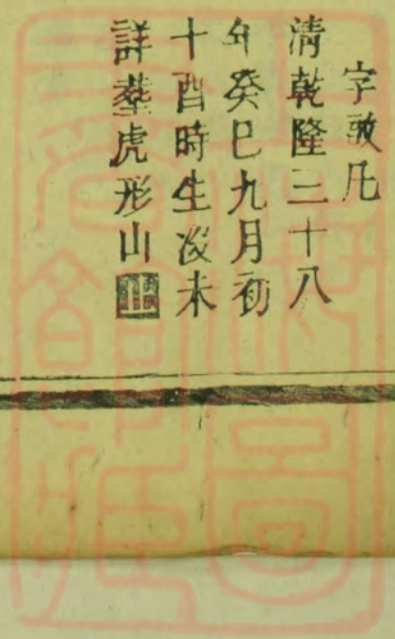 字敦凡
清乾隆三十八
年癸巳九月初
十酉時生殁未
詳塟虎形山止